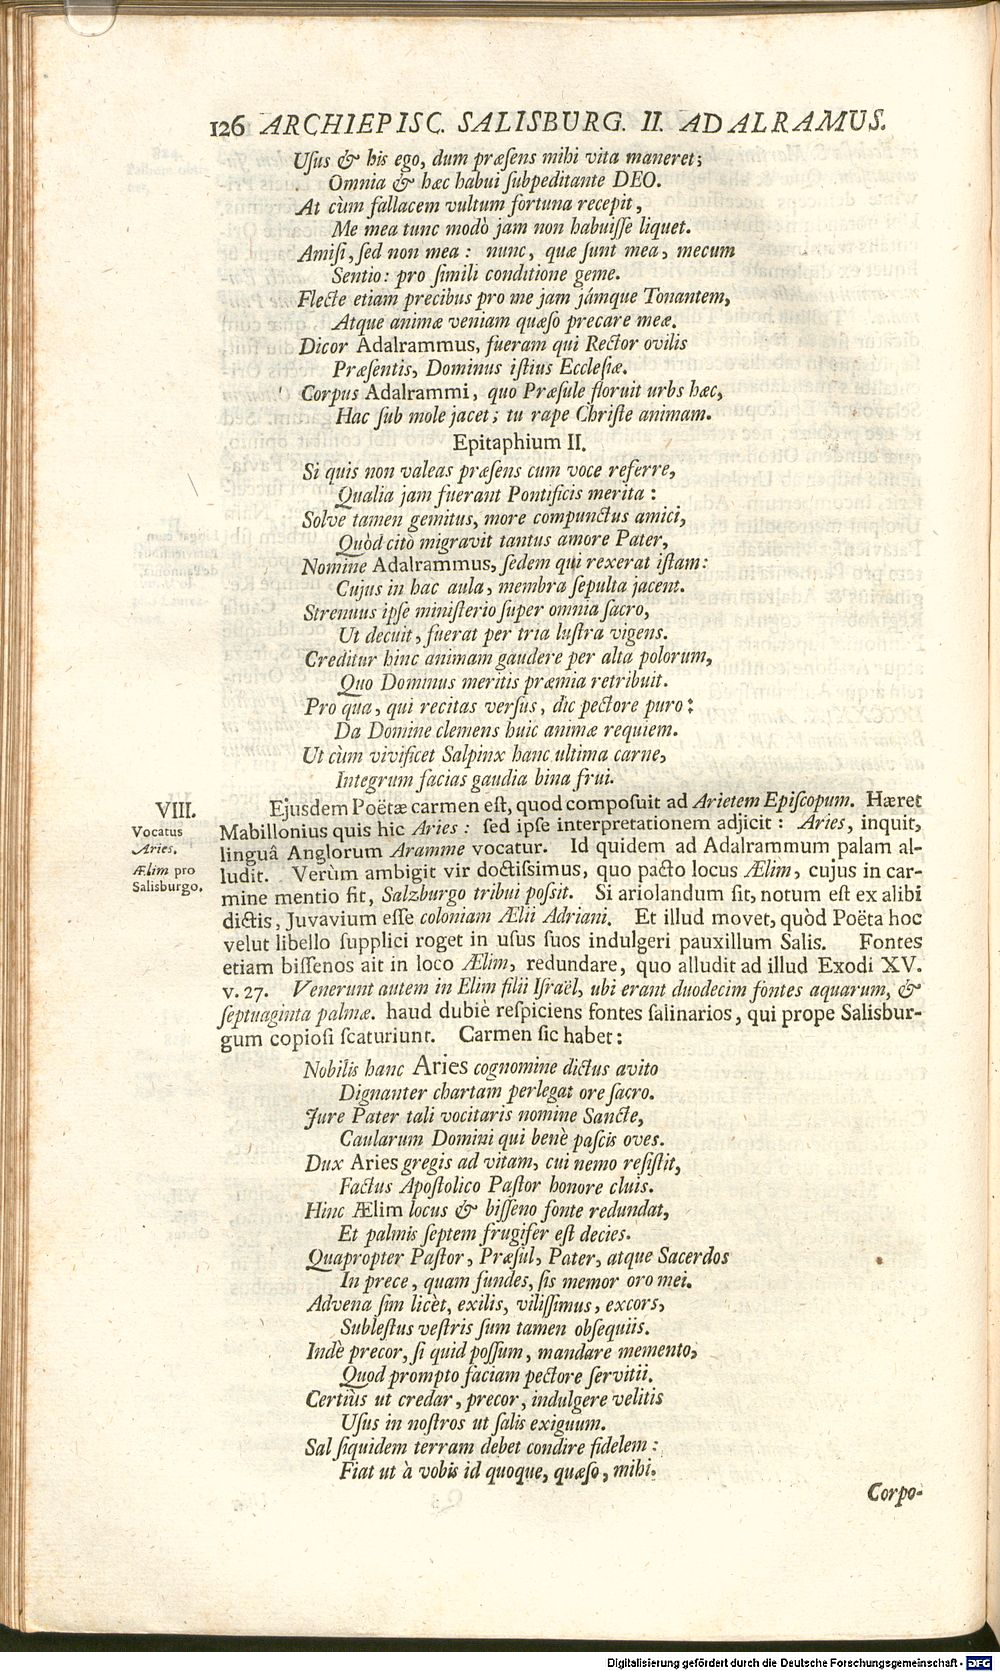 126 ARCHIEPISC. SALISBURG. II. ADALRAMUS.
Uſus & his ego, dum præſens mihi vita maneret;
Omnia & hæc habui ſubpeditante DEO.
At cùm fallacem vultum fortuna recepit,
Me mea tunc modò jam non habuiſſe liquet.
Amiſi, ſed non mea: nunc, quæ ſunt mea, mecum
Sentio: pro ſimili conditione geme.
Flecte etiam precibus pro me jam jámque Tonantem,
Atque animæ veniam quæſo precare meæ.
Dicor Adalrammus, fueram qui Rector ovilis
Præſentis, Dominus iſtius Eccleſiæ.
Corpus Adalrammi, quo Præſule floruit urbs hæc,
Hac ſub mole jacet; tu rape Chriſte animam.
Epitaphium II.
Si quis non valeas præſens cum voce referre,
Qualia jam fuerant Pontificis merita:
Solve tamen gemitus, more compunctus amici,
Quòd citò migravit tantus amore Pater,
Nomine Adalrammus, ſedem qui rexerat iſtam:
Cujus in hac aula, membra ſepulta jacent.
Strenuus ipſe miniſterio ſuper omnia ſacro,
Ut decuit, fuerat per tria luſtra vigens.
Creditur hinc animam gaudere per alta polorum,
Quo Dominus meritis præmia retribuit.
Pro qua, qui recitas verſus, dic pectore puro:
Da Domine clemens huic animæ requiem.
Ut cùm vivificet Salpinx hanc ultima carne,
Integrum facias gaudia bina frui.
VIII.
Vocatus
Aries.
Ælim pro
Salisburgo.
Ejusdem Poëtæ carmen eſt, quod compoſuit ad Arietem Epiſcopum. Hæret
Mabillonius quis hic Aries: ſed ipſe interpretationem adjicit: Aries, inquit,
linguâ Anglorum Aramme vocatur. Id quidem ad Adalrammum palam al-
ludit. Verùm ambigit vir doctiſſimus, quo pacto locus Ælim, cujus in car-
mine mentio fit, Salzburgo tribui poſſit. Si ariolandum ſit, notum eſt ex alibi
dictis, Juvavium eſſe coloniam Ælii Adriani. Et illud movet, quòd Poëta hoc
velut libello ſupplici roget in uſus ſuos indulgeri pauxillum Salis. Fontes
etiam biſſenos ait in loco Ælim, redundare, quo alludit ad illud Exodi XV.
v. 27. Venerunt autem in Elim filii Iſraël, ubi erant duodecim fontes aquarum, &
ſeptuaginta palmæ. haud dubiè reſpiciens fontes ſalinarios, qui prope Salisbur-
gum copioſi ſcaturiunt. Carmen ſic habet:
Nobilis hanc Aries cognomine dictus avito
Dignanter chartam perlegat ore ſacro.
Jure Pater tali vocitaris nomine Sancte,
Caularum Domini qui benè paſcis oves.
Dux Aries gregis ad vitam, cui nemo reſiſtit,
Factus Apoſtolico Paſtor honore cluis.
Hinc Ælim locus & biſſeno fonte redundat,
Et palmis ſeptem frugifer eſt decies.
Quapropter Paſtor, Præſul, Pater, atque Sacerdos
In prece, quam fundes, ſis memor oro mei.
Advena ſim licèt, exilis, viliſſimus, excors,
Subleſtus veſtris ſum tamen obſequiis.
Indè precor, ſi quid poſſum, mandare memento,
Quod prompto faciam pectore ſervitii.
Certiùs ut credar, precor, indulgere velitis
Uſus in noſtros ut ſalis exiguum.
Sal ſiquidem terram debet condire fidelem:
Fiat ut à vobis id quoque, quæſo, mihi.
Corpo-
Digitalisierung gefördert durch die Deutsche Forschungsgemeinschaft - DFG